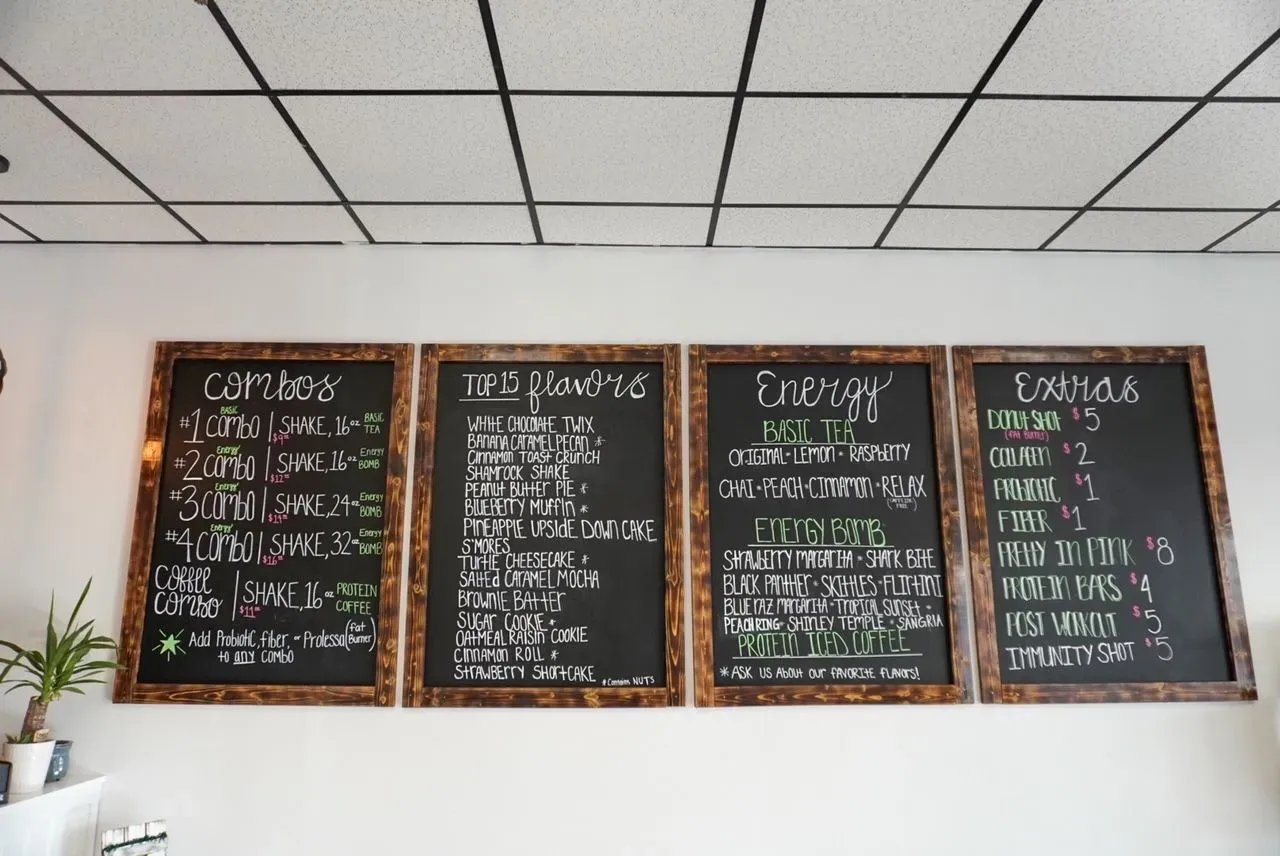 combos
#1 BASIC combo | SHAKE, 16oz BASIC TEA
#2 Energy combo | SHAKE, 16oz Energy BOMB
$12
#3 Energy combo | SHAKE, 24oz Energy BOMB
$14
#4 Energy combo | SHAKE, 32oz Energy BOMB
$16
COffee combo | SHAKE, 16oz PROTEIN COFFEE
$11
Add Probiotic, fiber, or Prolessa (fat Burner)
to any COMBO
TOP 15 flavors
WHITE CHOCOLATE TWIX
BANANA CARAMEL PECAN *
CINNAMON TOAST CRUNCH
SHAMROCK SHAKE
PEANUT BUTTER PIE *
BLUEBERRY MUFFIN *
PINEAPPLE UPSIDE DOWN CAKE
S'MORES
TURTLE CHEESECAKE *
SALTED CARAMEL MOCHA
BROWNIE BATTER
SUGAR COOKIE *
OATMEAL RAISIN COOKIE
CINNAMON ROLL *
STRAWBERRY SHORTCAKE
* Contains NUTS
Energy
BASIC TEA
ORIGINAL * LEMON * RASPBERRY
CHAI * PEACH * CINNAMON * RELAX
(CAFFEINE FREE)
ENERGY BOMB
STRAWBERRY MARGARITA * SHARK BITE
BLACK PANTHER * SKITTLES * FLIRTINI
BLUE RAZ MARGARITA * TROPICAL SUNSET *
PEACH RING * SHIRLEY TEMPLE * SANGRIA
PROTEIN ICED COFFEE
* ASK US ABOUT OUR FAVORITE FLAVORS!
Extras
DONUT SHOT $5
(FAT BURNER)
COLLAGEN $2
PROBIOTIC $1
FIBER $1
PRETTY IN PINK $8
PROTEIN BARS $4
POST WORKOUT $5
IMMUNITY SHOT $5